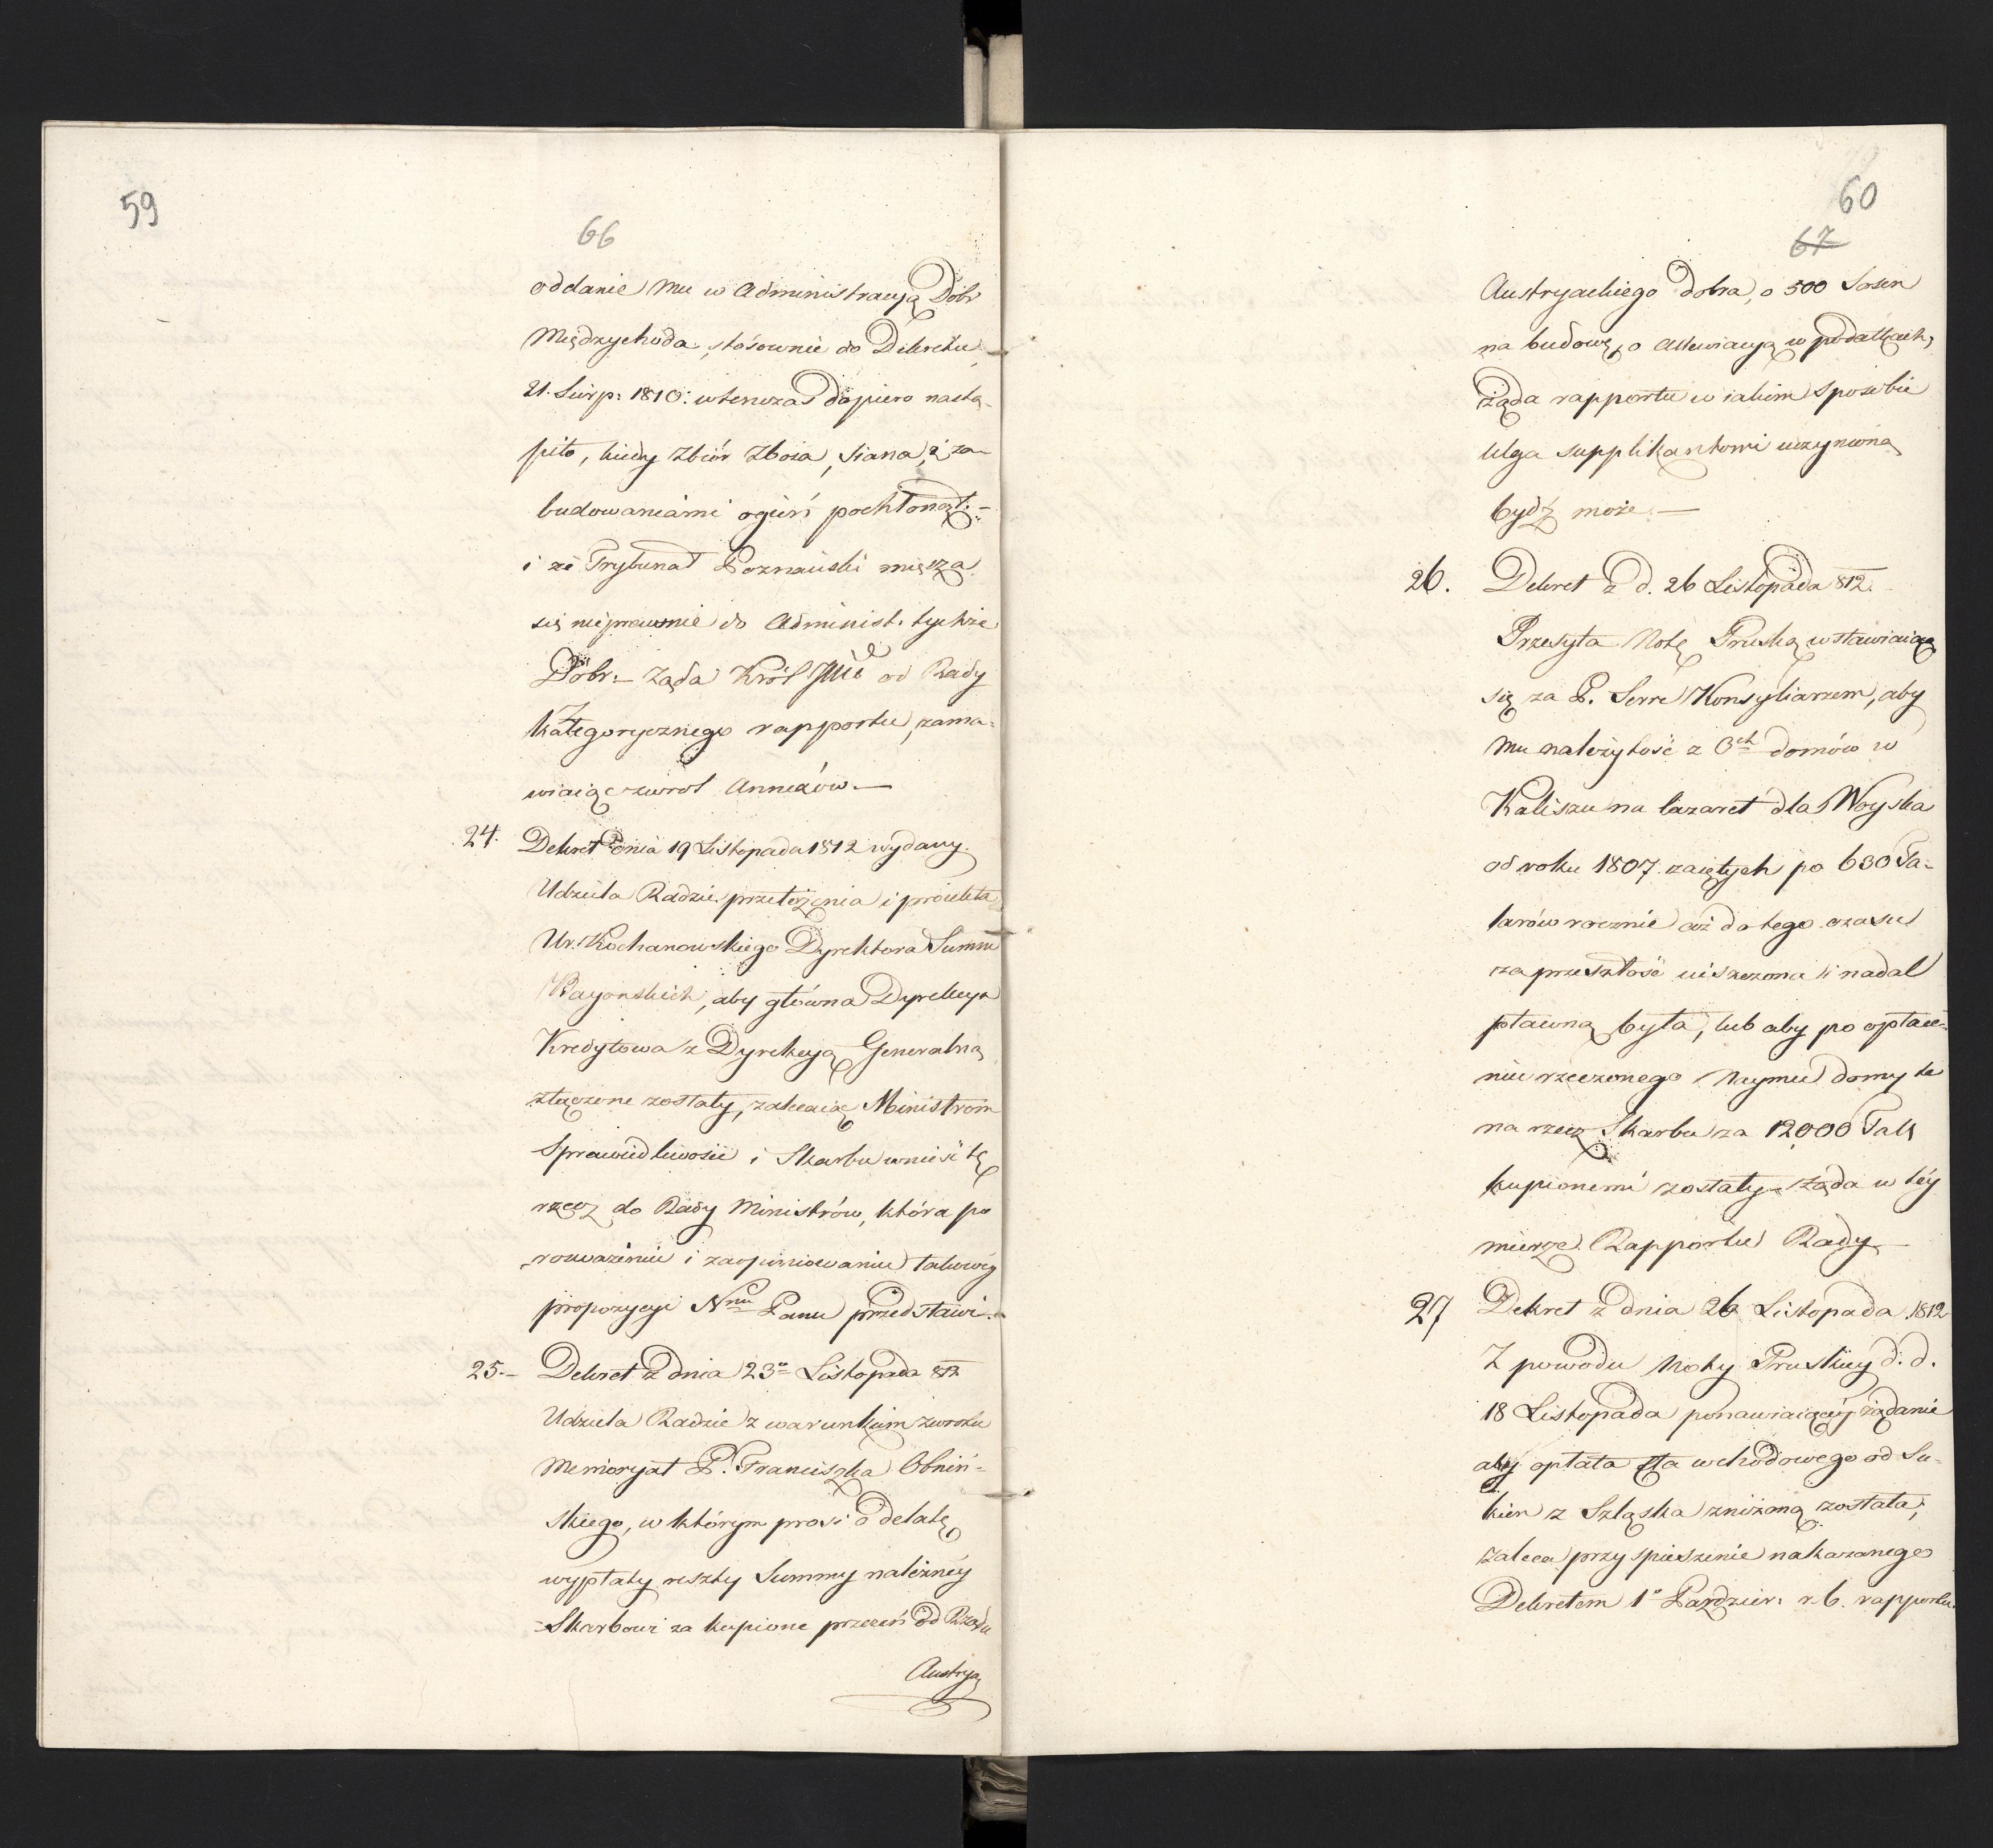 59
66
oddanie mu w Administracyą Dóbr
Międzychoda, stósownie do Dekretu
21. Sierp: 1810: wtenczas dopiero nastą-
piło, kiedy zbiór zboża, siana, i za-
budowaniami ogień pochłonął. –
i że Trybunał Poznański miesza
się nieprawnie do Administ. tychże
Dóbr. – Żąda Król JMć od Rady
kategorycznego rapportu, zama-
wiaiąc zwrot Annexów. –
24. Dekret dnia 19 Listopada 1812 wydany.
Udziela Radzie przełożenia i proiekta
Ur. Kochanowskiego Dyrektora Summ
Bayońskich, aby główna Dyrekcya
Kredytowa z Dyrekcyą Generalną
złączone zostały, zalecaiąc Ministrom
Sprawiedliwości i Skarbu wnieść tę
rzecz do Rady Ministrów, która po
rozważeniu i zaopiniowaniu takowéy
propozycyi Nmu Panu przedstawi. –
25. – Dekret z dnia 23º Listopada 812
Udziela Radzie z warunkiem zwrotu
Memoryał P. Franciszka Obniń-
skiego, w którym prosi o delatę
wypłaty reszty Summy należnéy
Skarbowi za kupione przezeń od Rządu
Austrya
60
67
Austryackiego dobra, o 500 Sosen
na budowę, o Allewiacyą w podatkach,
żąda rapportu w iakim sposobie
ulga supplikantowi uczynioną
bydź może. –
26. Dekret z d. 26 Listopada 812.
Przesyła Notę Pruską wstawiaiąc
się za P. Serre Konsyliarzem, aby
mu należytość z 3ch domów w
Kaliszu na lazaret dla Woyska
od roku 1807. zaiętych po 630 Ta-
larów rocznie aż do tego czasu
za przeszłość uiszczona i nadal
płaconą była, lub aby po opłace-
niu rzeczonego Naymu domy te
na rzecz Skarbu za 12,000 Tal.
kupionemi zostały – żąda w téy
mierze Rapportu Rady –
27 Dekret z dnia 26 Listopada 1812
Z powodu Noty Pruskiey d. d.
18 Listopada ponawiaiącéy żądanie
aby opłata cła wchodowego od Su-
kien z Szląska zniżoną została,
zaleca przyspieszenie nakazanego
Dekretem 1º Paździer: r. b. rapportu.